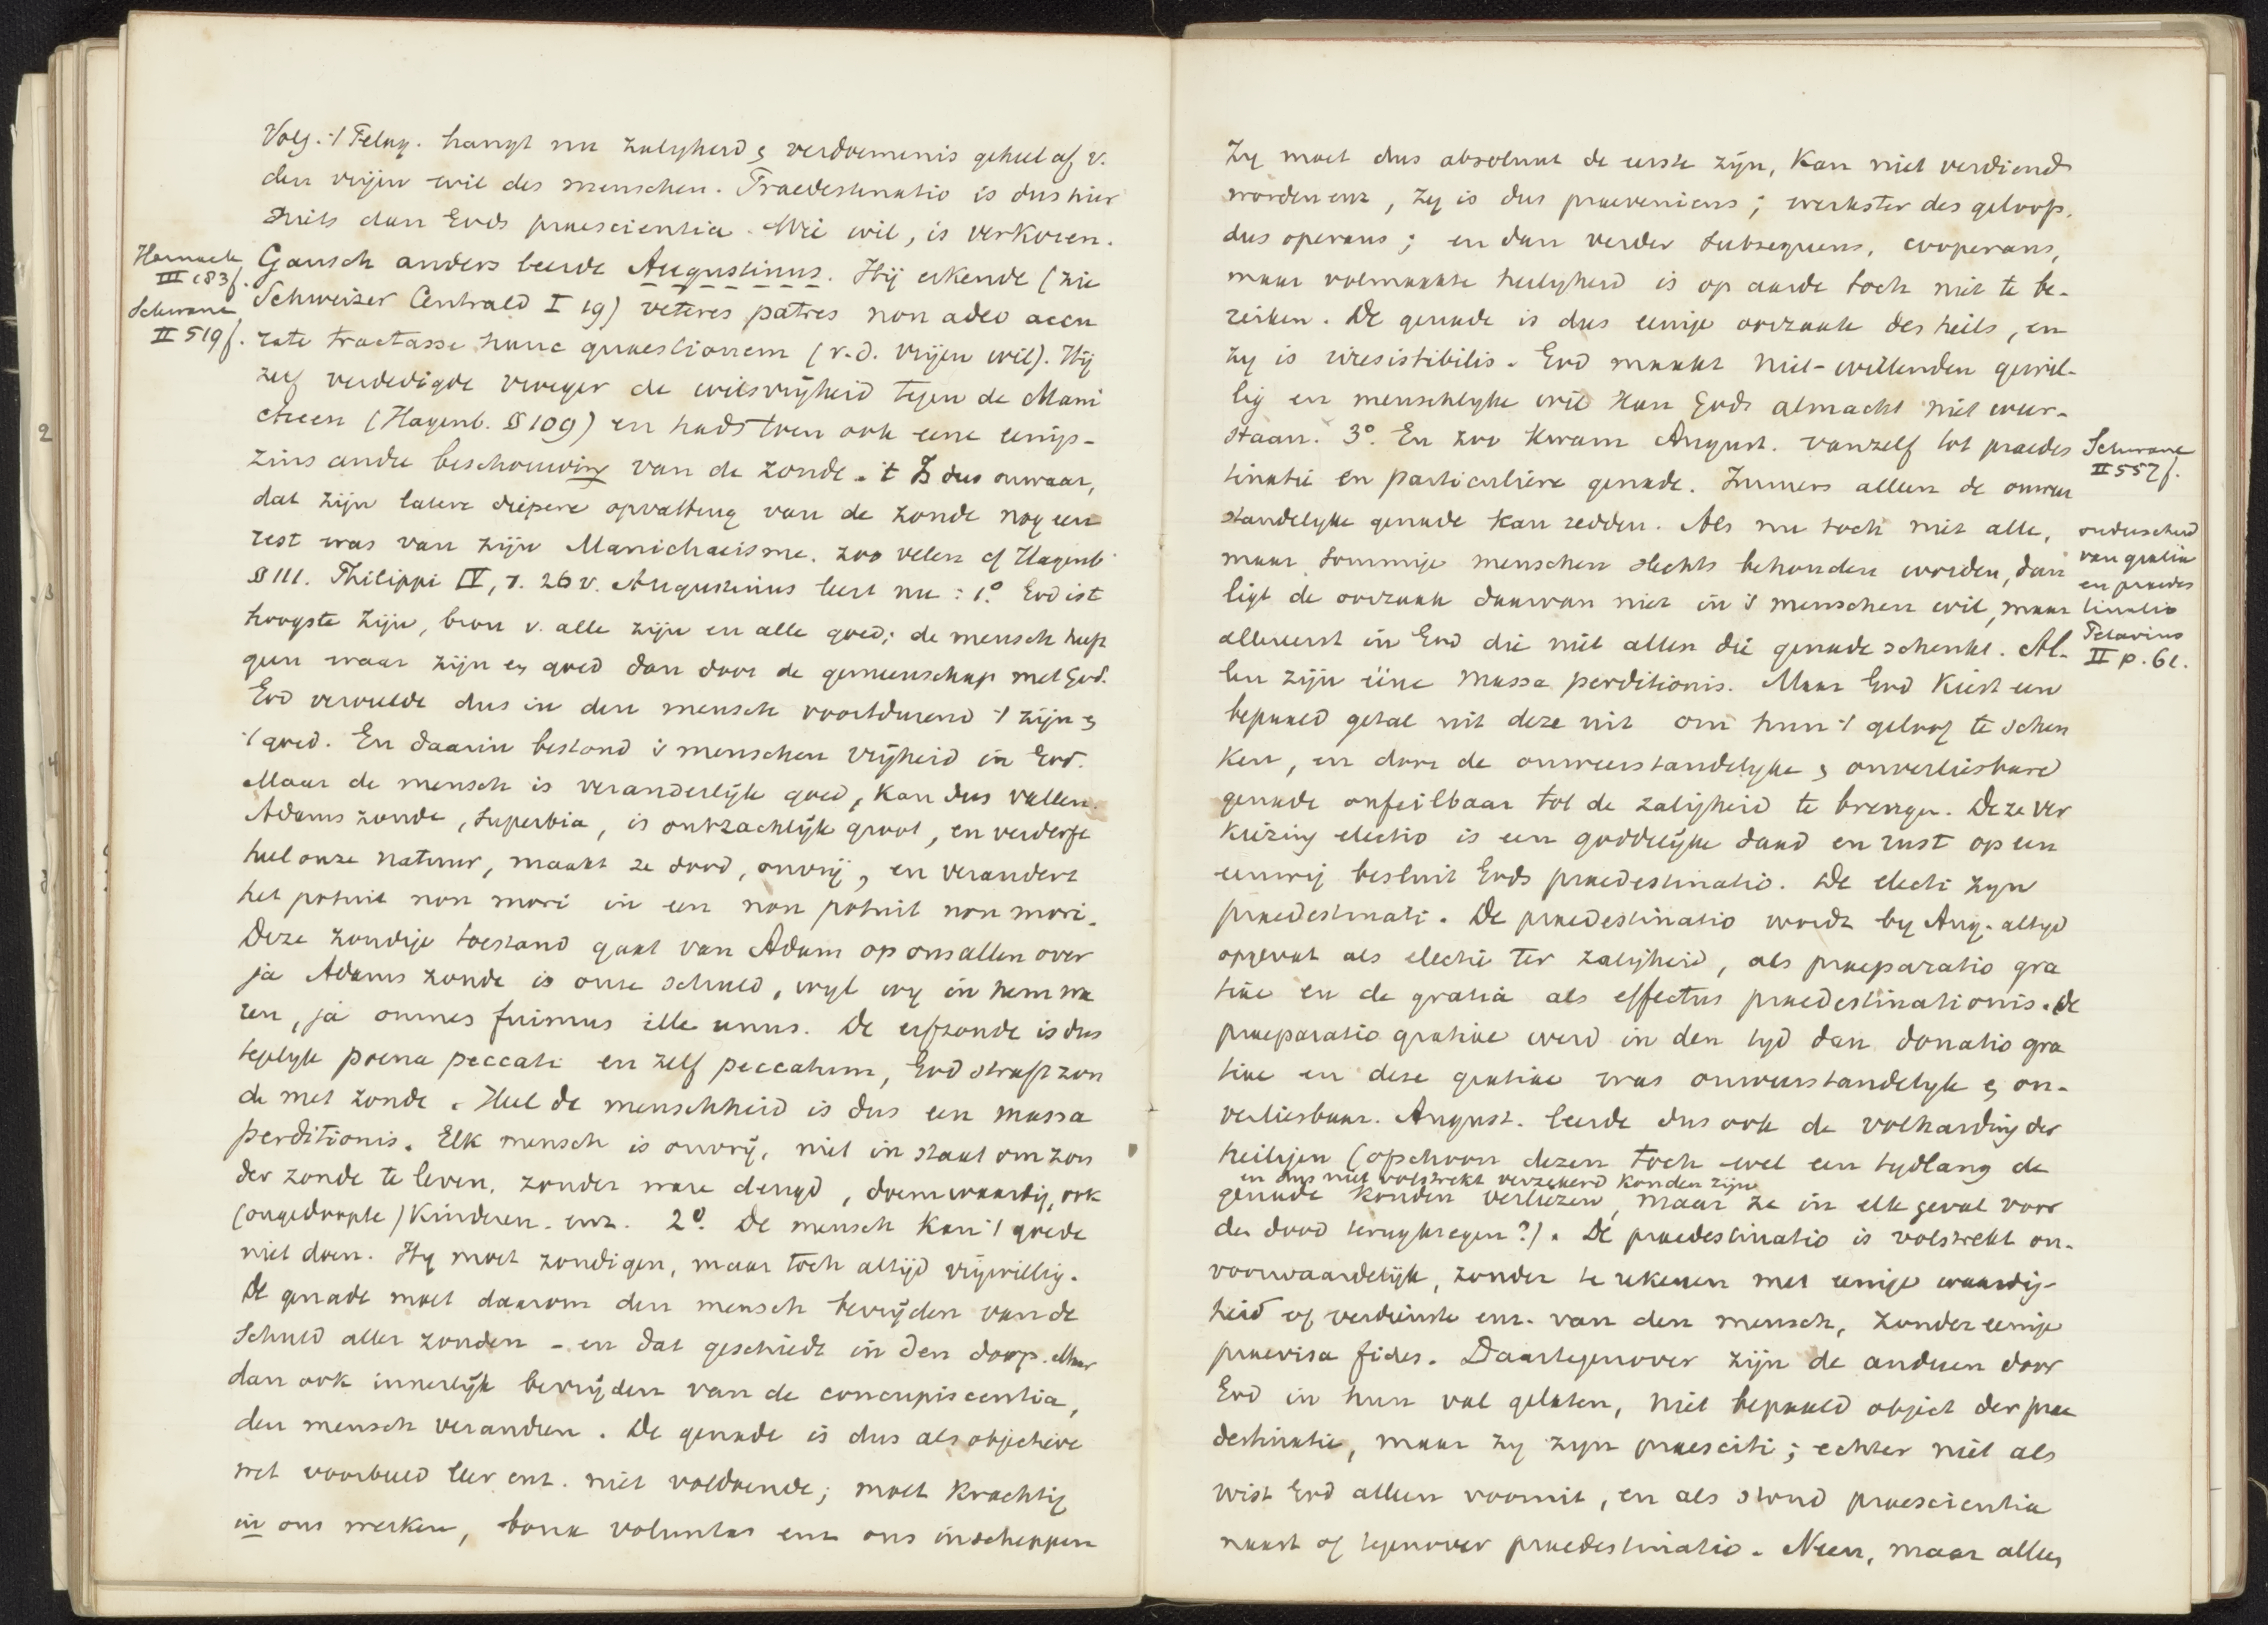 Volg. 't Pelag. hangt nu zaligheid & verdoemenis geheel af v.
den vrijen wil des menschen. Praedestinatio is dus hier
niets dan Gods praescientia. Wie wil, is verkoren.
Harnack
III 183f.
Schwane
II 519f.
Gansch anders leerde Augustinus. Hij erkende (zie
Schweizer Centrald I 19) veteres patres non adeo accu
rate tractasse hanc quaestionem (v. d. vrijen wil). Hij
zelf verdedigde vroeger de wilsvrijheid tegen de Mani
cheen (Hagenb. § 109) en had toen ook eene eenigs-
zins andre beschouwing van de zonde. 't Is dus onwaar,
dat zijn latere diepere opvatting van de zonde nog een
rest was van zijn Manichaeisme. zoo velen cf Hagenb
§ 111. Philippi IV, 1. 26 v. Augustinus leert nu: 1.° God is 't
hoogste zijn, bron v. alle zijn en alle goed; de mensch heeft
geen waar zijn en goed dan door de gemeenschap met God.
God vervulde dus in den mensch voortdurend 't zijn &
't goed. En daarin bestond 's menschen vrijheid in God.
Maar de mensch is veranderlijk goed, kan dus vallen.
Adams zonde, superbia, is ontzachlijk groot, en verderft
heel onze natuur, maakt ze dood, onvrij, en verandert
het potuit non mori in een non potuit non mori.
Deze zondige toestand gaat van Adam op ons allen over
ja Adams zonde is onze schuld, wyl wy in hem wa
ren, ja omnes fuimus ille unus. De erfzonde is dus
tegelyk poena peccati en zelf peccatum, God straft zon
de met zonde. Heel de menschheid is dus een massa
perditionis. Elk mensch is onvrij, niet in staat om zon
der zonde te leven, zonder ware deugd, doemwaardig, ook
(ongedoopte) kinderen. enz. 2° De mensch kan 't goede
niet doen. Hy moet zondigen, maar toch altijd vrijwillig.
De genade moet daarom den mensch bevrijden van de
schuld aller zonden - en dat geschiedt in den doop. Maar
dan ook innerlijk bevrijden van de concupiscentia,
den mensch veranderen. De genade is dus als objectieve
wet voorbeeld leer enz. niet voldoende; moet krachtig
in ons werken, bona voluntas enz ons inscheppen
Zy moet dus absoluut de eerste zijn, kan niet verdiend
worden enz, zy is dus praeveniens; werkster des geloofs.
dus operans; en dan verder subsequens, cooperans,
maar volmaakte heiligheid is op aarde toch niet te be-
reiken. De genade is dus eenige oorzaak des heils, en
zy is irresistibilis. God maakt niet-willenden gewil-
lig en menschlyke wil kan Gods almacht niet weer-
staan. 3°. En zoo kwam August. vanzelf tot praedes
tinatie en particuliere genade. Immers alleen de onweer
standelyke genade kan redden. Als nu toch niet alle,
maar sommige menschen slechts behouden worden, dan
ligt de oorzaak daarvan niet in 's menschen wil, maar
allereerst in God die niet allen die genade schenkt. Al-
len zijn ééne massa perditionis. Maar God kiest een
bepaald getal uit deze uit om hun 't geloof te schen
ken, en door de onweerstandelyke & onverliesbare
genade onfeilbaar tot de zaligheid te brengen. Deze ver
kiezing electio is een goddelijke daad en rust op een
eeuwig besluit Gods praedestinatio. De electi zyn
praedestinati. De praedestinatio wordt by Aug. altyd
opgevat als electie ter zaligheid, als praeparatio gra
tiae en de gratia als effectus praedestinationis. De
praeparatio gratiae werd in den tyd dan donatio gra
tiae en deze gratiae was onweerstandelyk & on-
verliesbaar. August. leerde dus ook de volharding der
heiligen (opschoon dezen toch wel een tydlang de
en dus niet volstrekt verzekerd konden zijn
genade konden verliezen, maar ze in elk geval voor
den dood terugkregen?). De praedestinatio is volstrekt on-
voorwaardelijk, zonder te rekenen met eenige waardig-
heid of verdienste enz. van den mensch, zonder eenige
praevisa fides. Daartegenover zijn de anderen door
God in hun val gelaten, niet bepaald object der prae
destinatie, maar zy zyn praesciti; echter niet als
wist God alleen vooruit, en als stond praescientia
naast of tegenover praedestinatio. Neen, maar alles
Schwane
II 557f.
onderscheid
van gratia
en praedes
tinatio
Petavius
II p. 61.